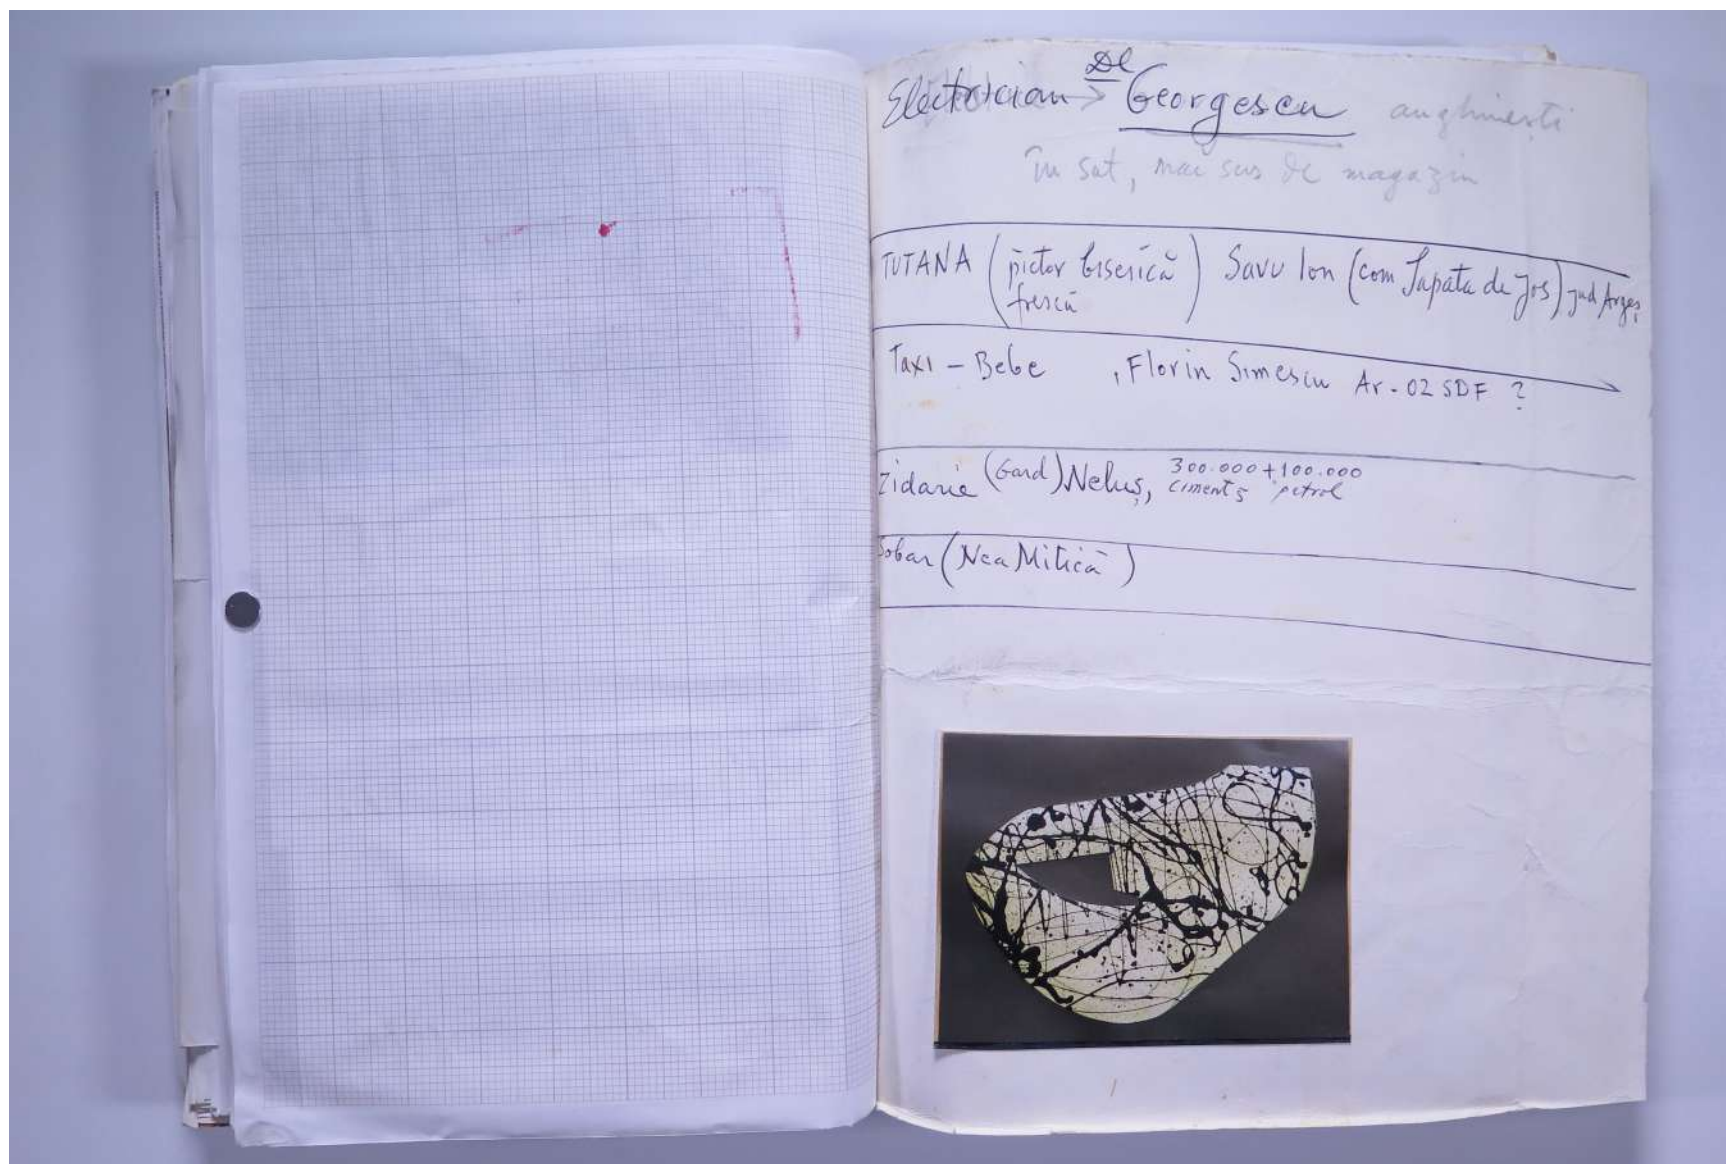 Electrician → Dl Georgescu anghinești
în sat, mai sus de magazin
TUTANA (pictor biserică frescă) Savu Ion (com Sapata de Jos) jud Argeș
Taxi - Bebe , Florin Simescu Ar - 02 SDF ?
Zidarie (Gard) Neluș, 300.000 + 100.000
ciment petrol
Sobar (Nea Mitică)